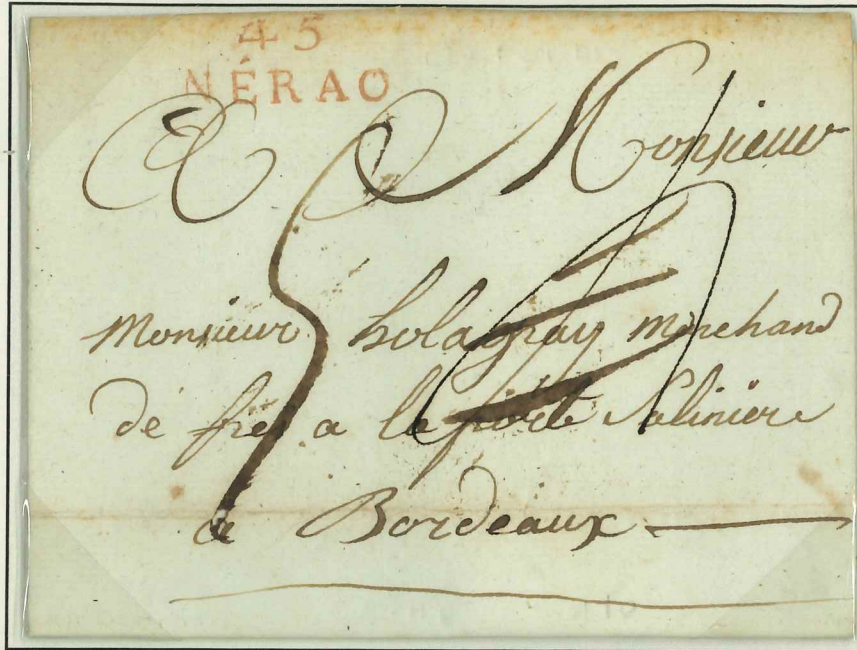 45
NÉRAC
A Monsieur
Monsieur holagray marchand
de frer a la porte Salinière
a Bordeaux